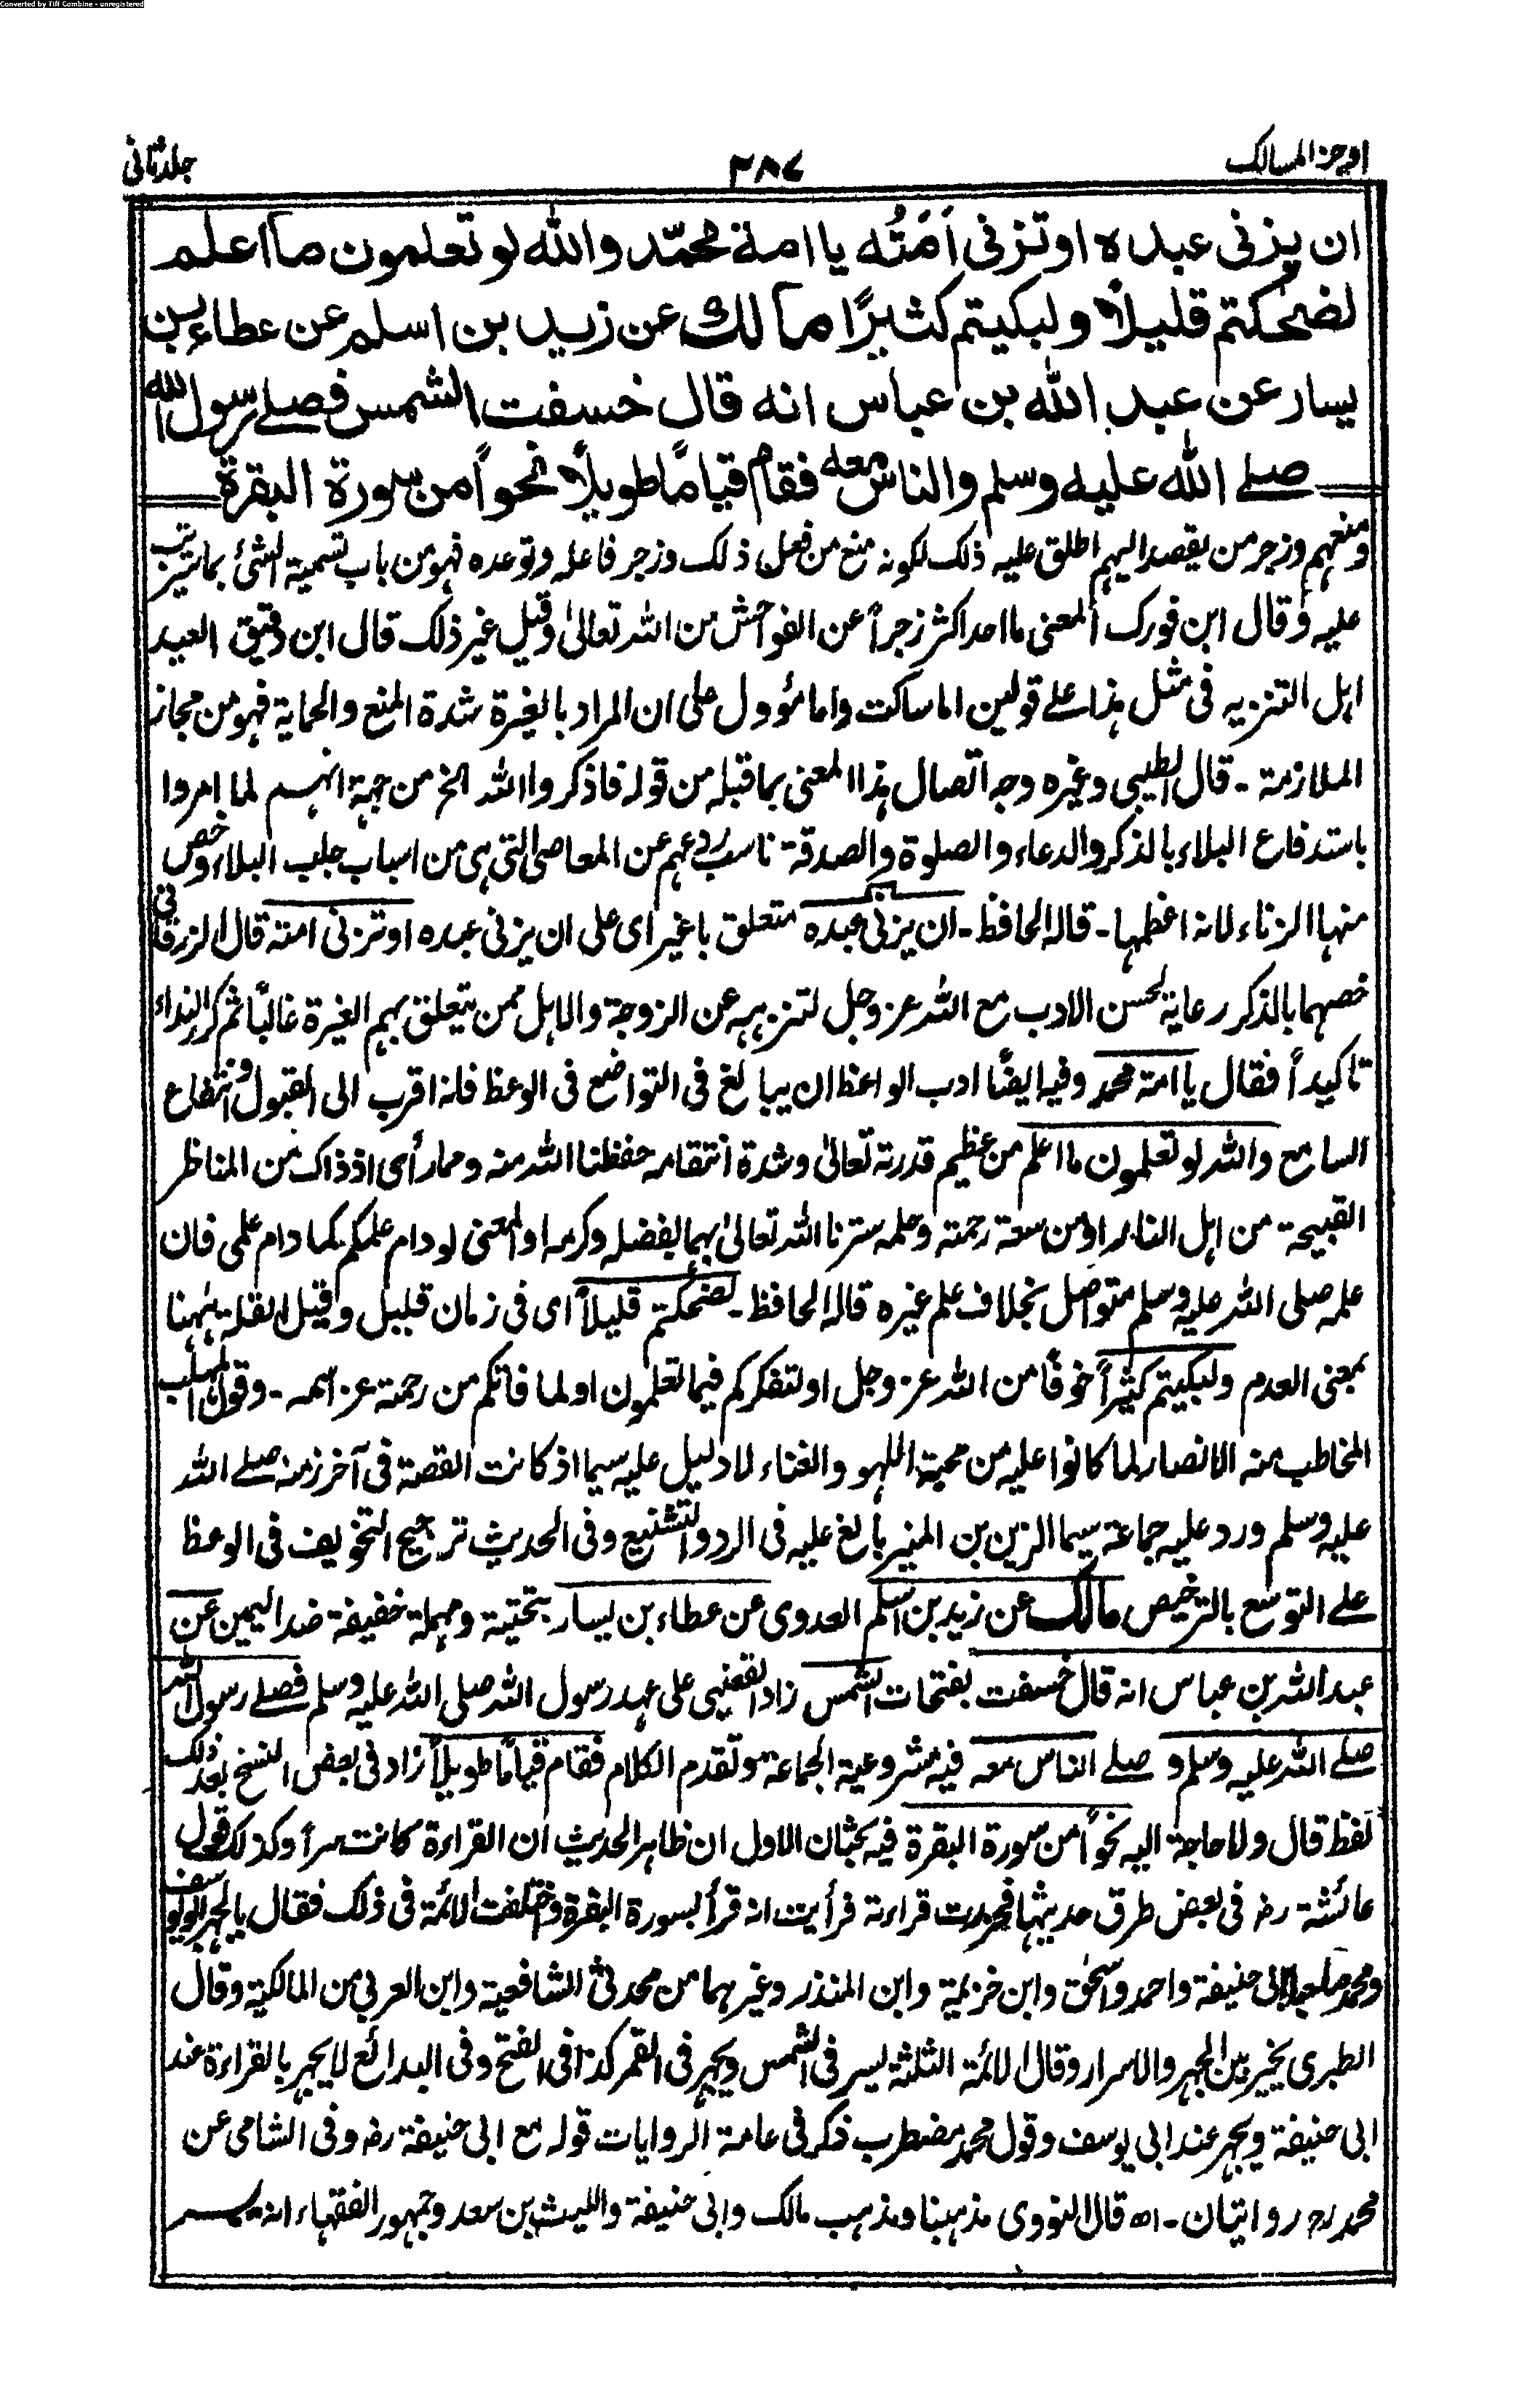 Converted by Tiff Combine - unregistered
اوجز المسالك ٣٨٧ جلد ثانى
ان يزنى عبده او تزنى اَمَتُه يا امة محمّد والله لو تعلمون ما اعلم
لضحكتم قليلاً ولبكيتم كثيرًا مالك عن زيد بن اسلم عن عطاء بن
يسار عن عبد الله بن عباس انه قال خسفت الشمس فصلے رسول الله
صلے الله عليه وسلم والناس معه فقام قيامًا طويلاً نحواً من سورة البقرة
ومنعهم وزجر من يقصد اليهم اطلق عليه ذلك لكونه منع من فعل ذلك وزجر فاعله وتوعده فهو من باب تسمية الشئ بما يترتب
عليه وقال ابن فورك المعنى ما احد اكثر زجراً عن الفواحش من الله تعالىٰ وقيل غير ذلك قال ابن دقيق العيد
اهل التنزيه فى مثل هذا علے قولين اما ساكت واما مؤول على ان المراد بالغيرة شدة المنع والحماية فهو من مجاز
الملازمة - قال الطيبى وغيره وجه اتصال هذا المعنى بما قبله من قوله فاذكروا الله الخ من جهة انهم لما امروا
باستدفاع البلاء بالذكر والدعاء والصلوة والصدقة ناسب ردعهم عن المعاصى التى هى من اسباب جلب البلاء وخص
منها الزناء لانه اعظمها - قاله الحافظ - ان يزنى عبده متعلق باغير اى على ان يزنى عبده او تزنى امته قال الزرقانى
خصهما بالذكر رعاية لحسن الادب مع الله عز وجل لتنزهه عن الزوجة والاهل ممن يتعلق بهم الغيرة غالبًا ثم كرر النداء
تاكيداً فقال يا امة محمد وفيه ايضًا ادب الواعظ ان يبالغ فى التواضع فى الوعظ فانه اقرب الى القبول وانتفاع
السامع والله لو تعلمون ما اعلم من عظيم قدرته تعالىٰ وشدة انتقامه حفظنا الله منه ومما رأى اذ ذاك من المناظر
القبيحة من اهل النار او من سعة رحمته وحلمه سترنا الله تعالىٰ بهما بفضله وكرمه او المعنى لو دام علمكم كما دام علمى فان
علمه صلى الله عليه وسلم متواصل بخلاف علم غيره قاله الحافظ - لضحكتم قليلاً اى فى زمان قليل وقيل القلة ههنا
بمعنى العدم ولبكيتم كثيراً خوفًا من الله عز وجل او لتفكركم فيما تعلمون او لما فاتكم من رحمة عز اسمه - وقول المهلب
المخاطب منه الانصار لما كانوا عليه من محبة اللهو والغناء لا دليل عليه سيما اذ كانت القصة فى آخر زمنه صلے الله
عليه وسلم ورد عليه جماعة سيما الزين بن المنير بالغ عليه فى الرد والتشنيع وفى الحديث ترجيح التخويف فى الوعظ
علے التوسع بالترخيص مالك عن زيد بن اسلم العدوى عن عطاء بن يسار بتحتية ومهملة خفيفة ضد اليمين عن
عبد الله بن عباس انه قال خسفت بفتحات الشمس زاد القعنبى على عهد رسول الله صلى الله عليه وسلم فصلے رسول الله
صلے الله عليه وسلم و صلے الناس معه فيه مشروعية الجماعة وتقدم الكلام فقام قيامًا طويلاً زاد فى بعض النسخ بعد ذلك
لفظ قال ولا حاجة اليه نحواً من سورة البقرة فيه بحثان الاول ان ظاهر الحديث ان القراءة كانت سراً وكذلك قول
عائشة رض فى بعض طرق حديثها فحزرت قراءته فرأيت انه قرأ بسورة البقرة واختلفت الائمة فى ذلك فقال بالجهر ابو يوسف
ومحمد صاحبا ابى حنيفة واحمد واسحٰق وابن خزيمة وابن المنذر وغيرهما من محدثى الشافعية وابن العربى من المالكية وقال
الطبرى يخير بين الجهر والاسرار وقال الائمة الثلثة يسر فى الشمس ويجهر فى القمر كذا فى الفتح وفى البدائع لا يجهر بالقراءة عند
ابى حنيفة ويجهر عند ابى يوسف وقول محمد مضطرب ذكر فى عامة الروايات قوله مع ابى حنيفة رض وفى الشامى عن
محمد رح روايتان - اه قال النووى مذهبنا ومذهب مالك وابى حنيفة والليث بن سعد وجمهور الفقهاء انه يسر